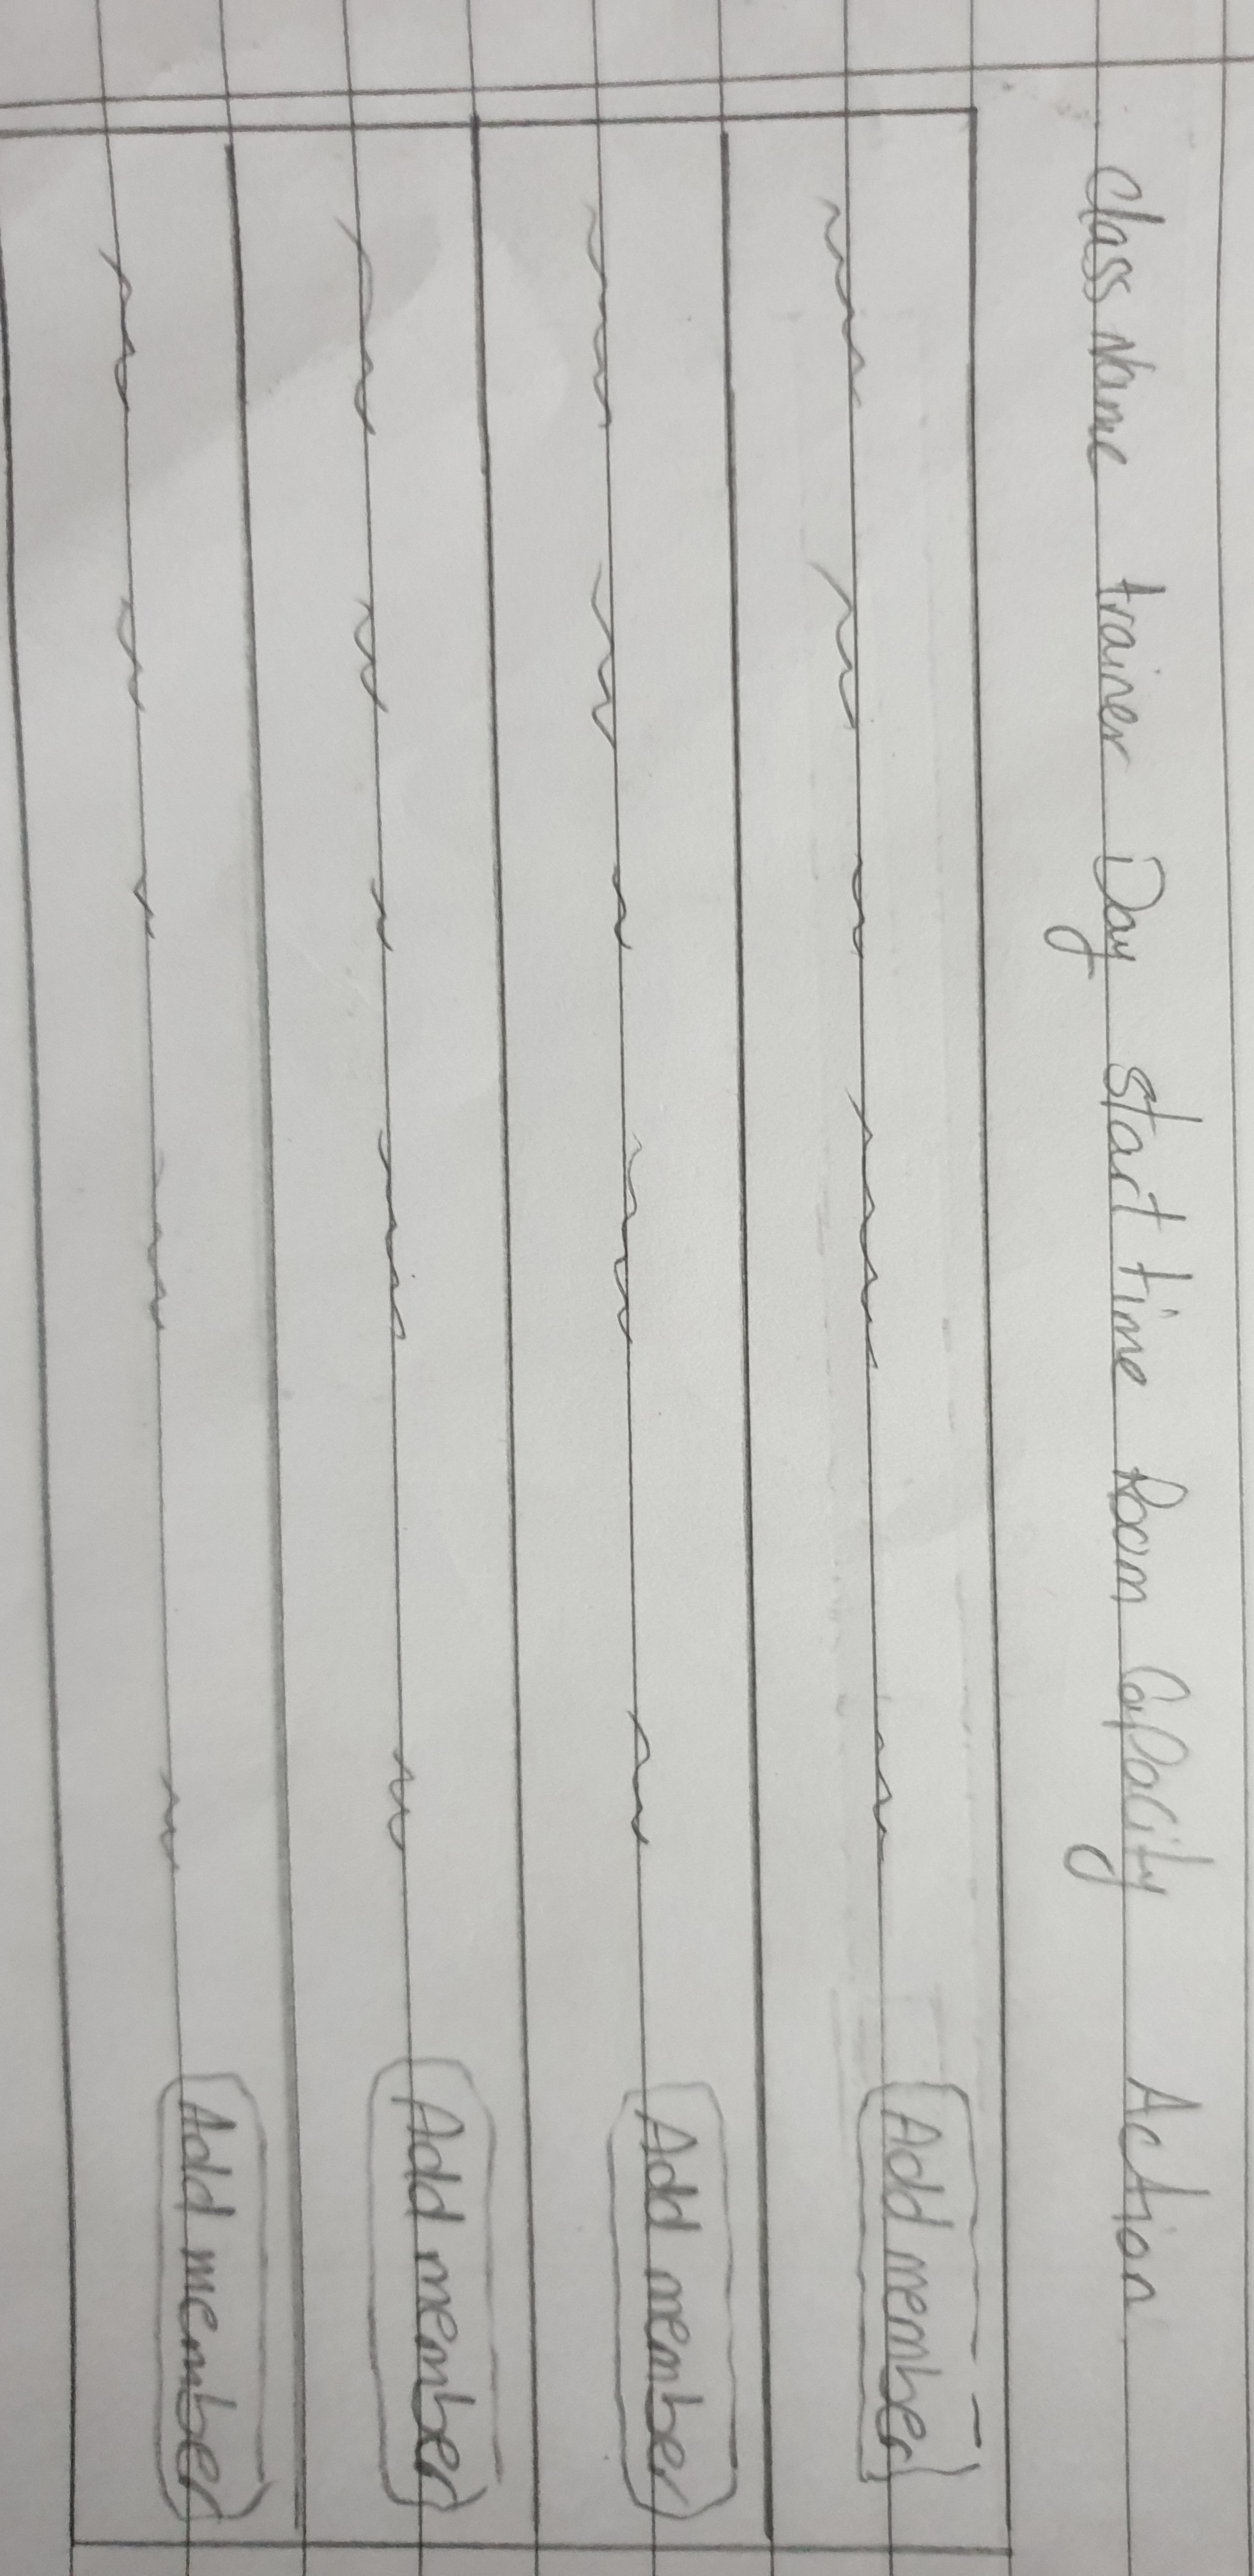 Class Name trainer Day start time Room Capacity Action
Add member
Add member
Add member
Add member